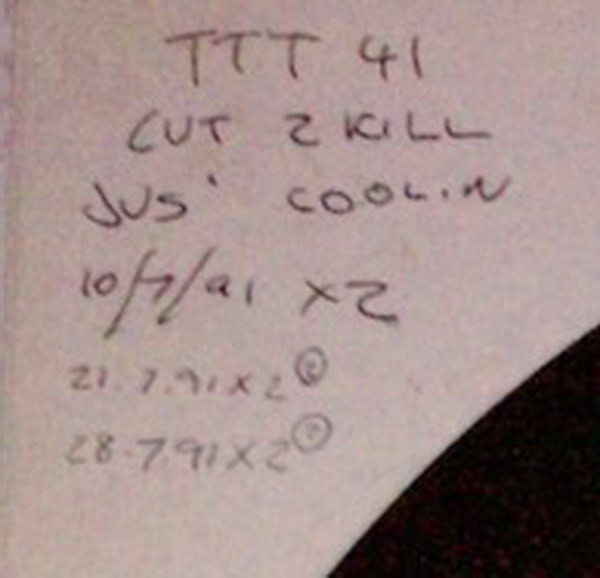 TTT 41
CUT 2 KILL
JUS' COOLIN
10/7/91 X2
21.7.91 X2
28.7.91 X2